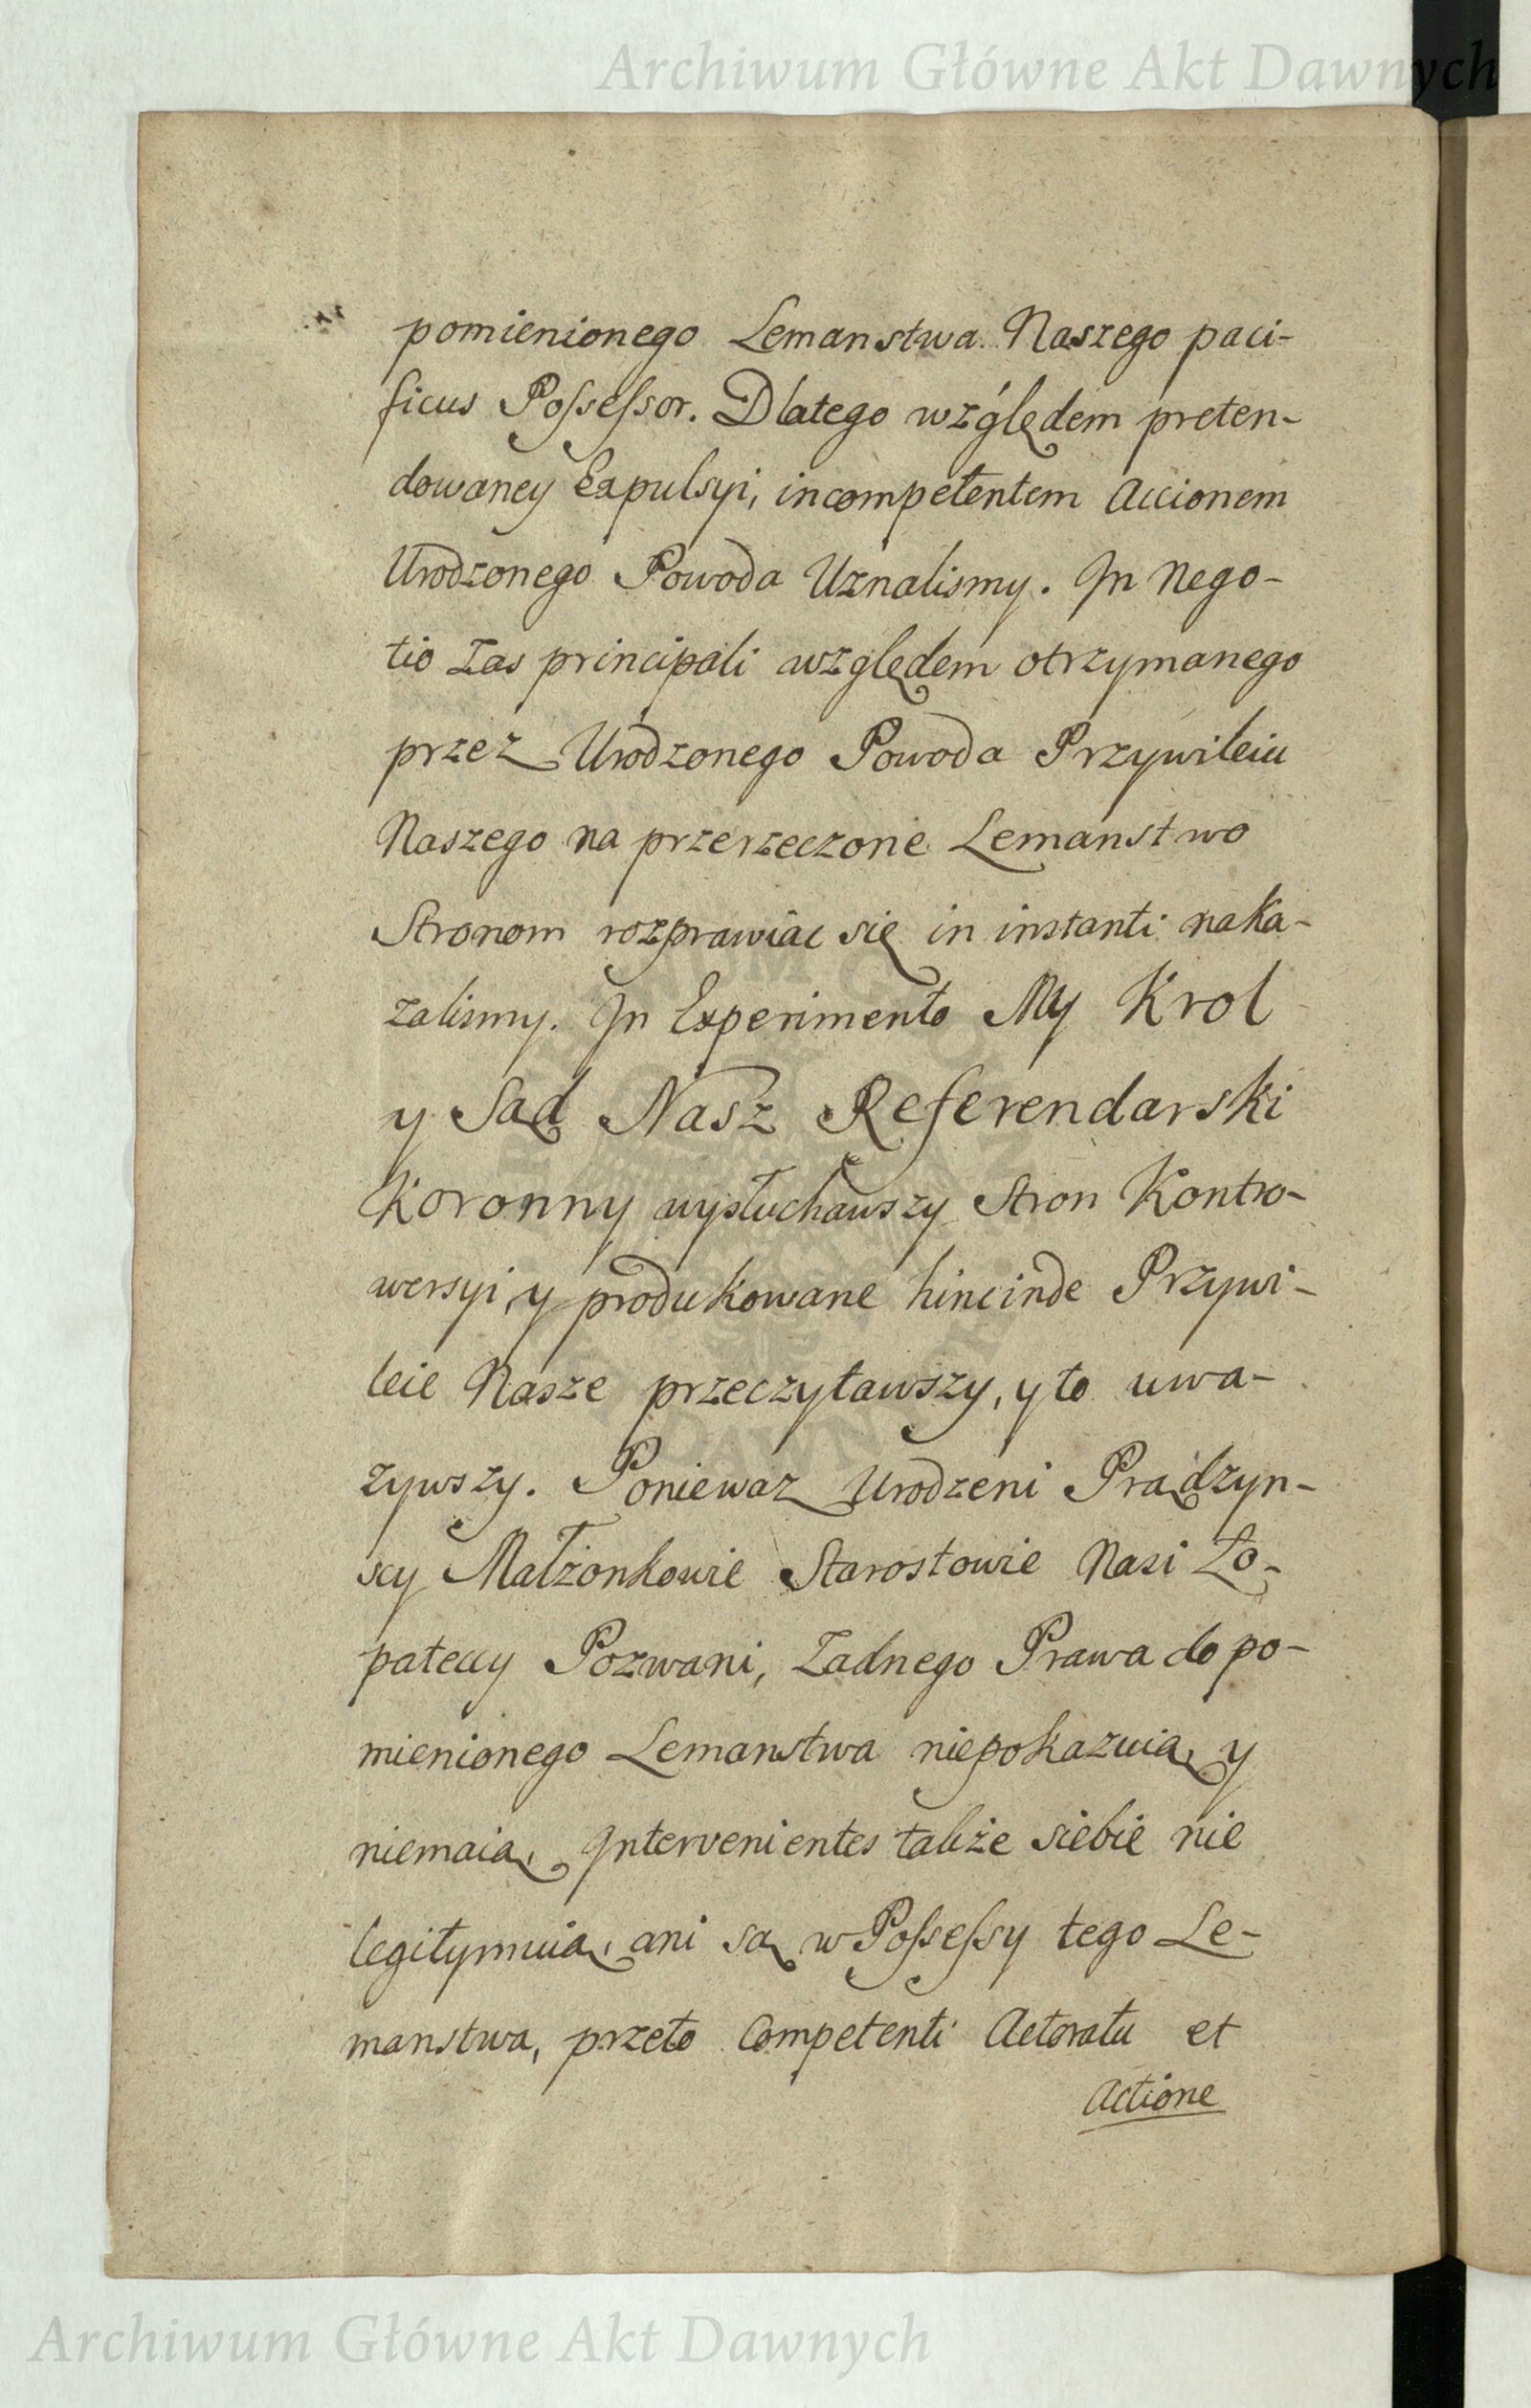 Archiwum Główne Akt Dawnych
pomienionego Lemanstwa Naszego paci-
ficus Possessor. Dlatego względem preten-
dowaney Expulsyi, incompetentem Accionem
Urodzonego Powoda Uznalismy. In Nego-
tio zas principali względem otrzymanego
przez Urodzonego Powoda Przywileiu
Naszego na przerzeczone Lemanstwo
Stronom rozprawiac się in instanti naka-
zalismy. In Experimento My Krol
y Sąd Nasz Referendarski
Koronny wysłuchawszy Stron Kontro-
wersyi, y produkowane hincinde Przywi-
leie Nasze przeczytawszy, y to uwa-
zywszy. Poniewaz Urodzeni Prądzyn-
scy Małżonkowie Starostowie Nasi Ło-
pateccy Pozwani, Zadnego Prawa do po-
mienionego Lemanstwa niepokazuią, y
niemaią, Intervenientes także siebie nie
legitymuią, ani są w Possessy tego Le-
manstwa, przeto Competenti Actoratu et
Actione
Archiwum Główne Akt Dawnych